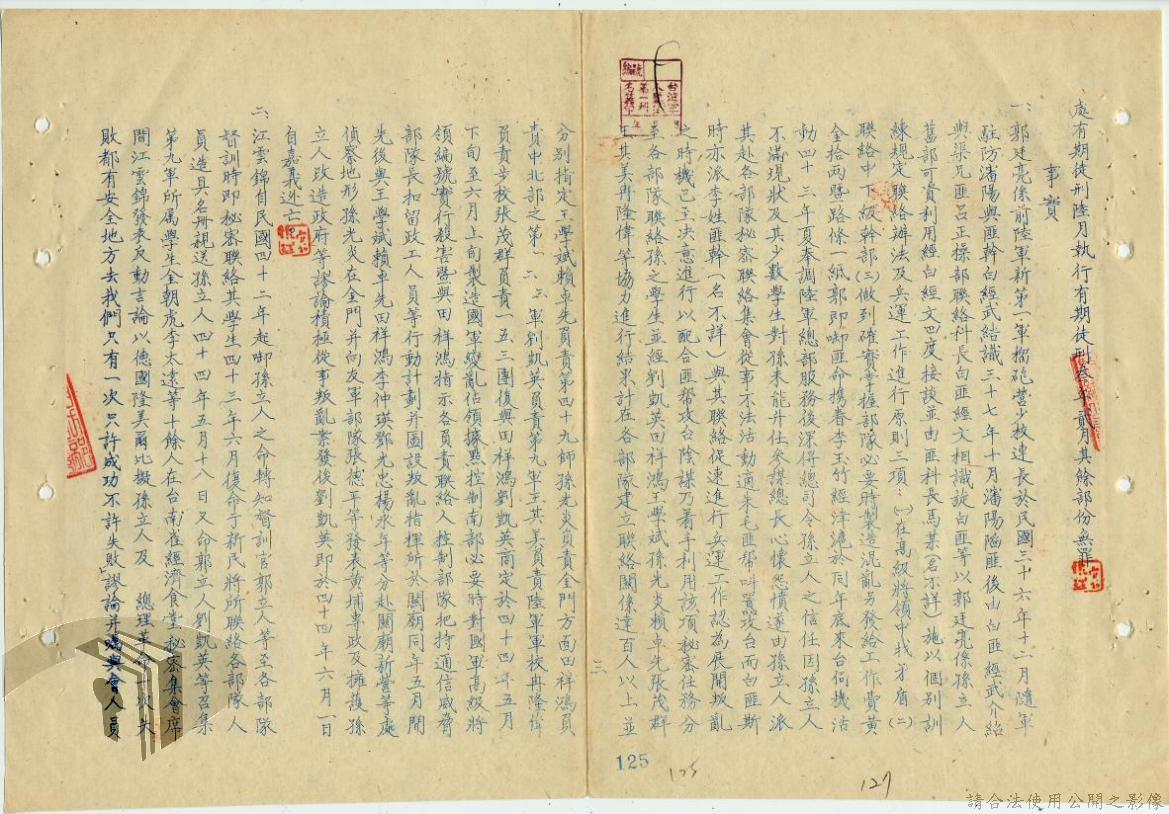 處有期徒刑陸月執行有期徒刑叁年貳月其餘部份無罪
事實
一、郭廷亮係前陸軍新第一軍榴砲營少校連長於民國三十六年十二月隨軍
駐防瀋陽與匪幹白經武結識三十七年十月瀋陽陷匪後由白匪經武介紹
與渠兄匪呂正操部聯絡科長白匪經文相識旋白匪等以郭廷亮係孫立人
舊部可資利用經白經文四度接談並由匪科長馬某(名不詳)施以個別訓
練規定聯絡辦法及兵運工作進行原則三項:(一)在高級將領中找矛盾(二)
聯絡中下級幹部(三)做到確實掌握部隊必要時製造混亂另發給工作費黃
金拾兩暨路條一紙郭即啣匪命携眷李玉竹經津滬於同年底來台伺機活
動四十三年夏奉調陸軍總部服務後深得總司令孫立人之信任因孫立人
不滿現狀及其少數學生對孫未能升任參謀總長心懷怨憤遂由孫立人派
其赴各部隊秘密聯絡集會從事不法活動適朱毛匪幫叫囂攻台而白匪斯
時亦派李姓匪幹(名不詳)與其聯絡促速進行兵運工作認為展開叛亂
之時機已至決意進行以配合匪幫攻台陰謀乃著手利用該項秘密任務分
至各部隊聯絡孫之學生並經劉凱英田祥鴻王學斌孫光炎賴卓先張茂群
王其美冉隆偉等協力進行結果計在各部隊建立聯絡關係達百人以上並
編號
三
125
125
127
分別指定王學斌賴卓先員責第四十九師孫光炎員責金門方面田祥鴻員
責中北部之第一、二、三軍劉凱英員責第九軍王其美員責陸軍軍校冉隆偉
員責步校張茂群員責一五三團復與田祥鴻劉凱英商定於四十四年五月
下旬至六月上旬製造國軍變亂佔領據點控制南部必要時對國軍高級將
領編號實行殺害暨與田祥鴻指示各員責聯絡人控制部隊把持通信威脅
部隊長扣留政工人員等行動計劃并圖設叛亂指揮所於關廟同年五月間
先後與王學斌賴卓先田祥鴻李仲瑛鄧光忠楊永年等分赴關廟新營等處
偵察地形孫光炎在金門并向友軍部隊張德平等發表黃埔專政及擁護孫
立人改造政府等謬論積極從事叛亂案發後劉凱英即於四十四年六月一日
自嘉義逃亡
二、江雲錦自民國四十二年起啣孫立人之命轉知督訓官郭立人等至各部隊
督訓時即秘密聯絡其學生四十三年六月復命于新民將所聯絡各部隊人
員造具名册親送孫立人四十四年五月十八日又命郭立人劉凱英等召集
第九軍所屬學生金朝虎李太遠等十餘人在台南雀經濟食堂秘密集會席
間江雲錦發表反動言論以德國隆美爾比擬孫立人及 總理革命
敗都有安全地方去我們只有一次只許成功不許失敗謬論并囑與會人員
請合法使用公開之影像